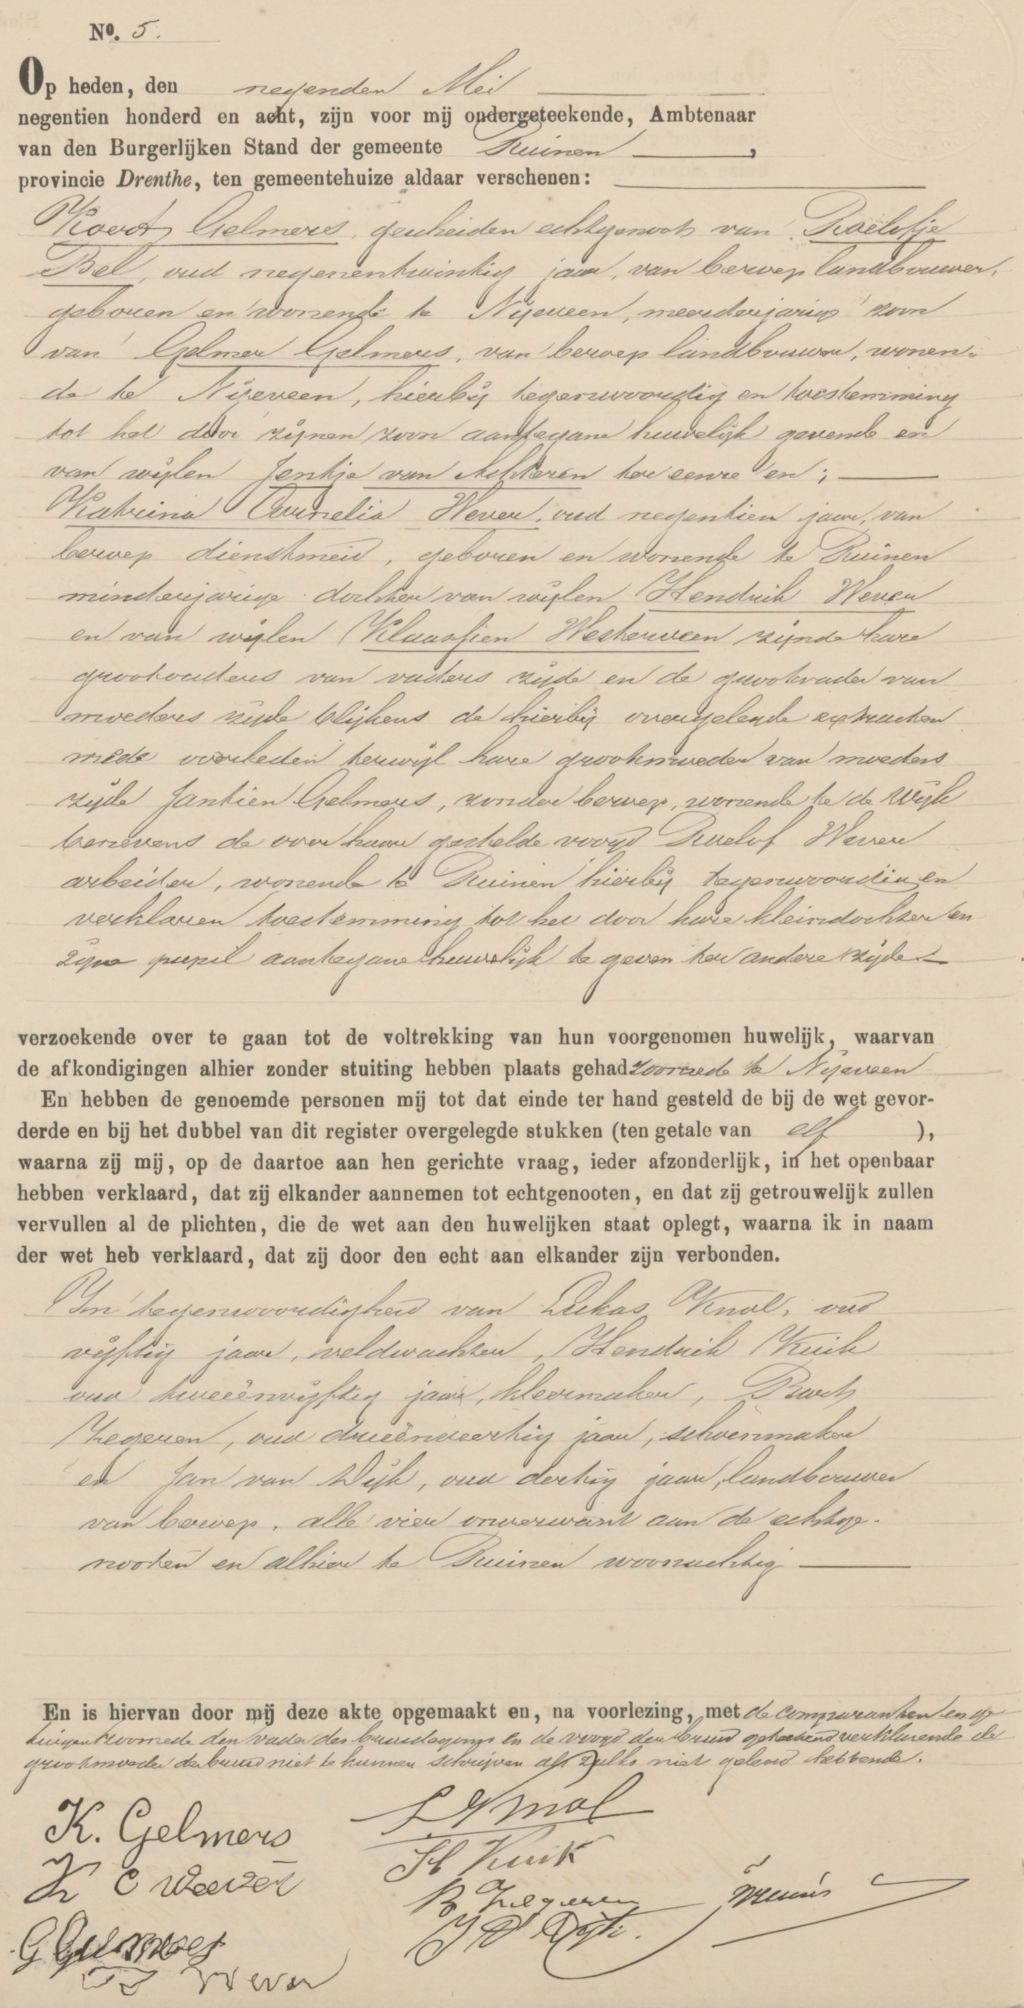 Nº. 5.
Op heden, den negenden Mei
negentien honderd en acht, zijn voor mij ondergeteekende, Ambtenaar
van den Burgerlijken Stand der gemeente Ruinen,
provincie Drenthe, ten gemeentehuize aldaar verschenen:
Koert Gelmers, gescheiden echtgenoot van Roelofje
Bel, oud negenentwintig jaar, van beroep landbouwer,
geboren en wonende te Nijeveen, meerderjarige zoon
van Gelmer Gelmers, van beroep landbouwer, wonen-
de te Nijeveen, hierbij tegenwoordig en toestemming
tot het door zijnen zoon aantegane huwelijk gevende en
van wijlen Jentje van Achteren ter eenre en;
Katrina Cornelia Wever, oud negentien jaar, van
beroep dienstmeid, geboren en wonende te Ruinen
minderjarige dochter van wijlen Hendrik Wever
en van wijlen Klaassien Westerveen zijnde hare
grootouders van vaders zijde en de grootvader van
moeders zijde blijkens de hierbij overgelegde extracten
mede overleden terwijl hare grootmoeder van moeders
zijde Jantien Gelmers, zonder beroep, wonende te de Wijk
benevens de over haar gestelde voogd Roelof Wever
arbeider, wonende te Ruinen hierbij tegenwoordig en
verklaren toestemming tot het door hare kleindochter en
zijne pupil aantegane huwelijk te geven ter andere zijde
verzoekende over te gaan tot de voltrekking van hun voorgenomen huwelijk, waarvan
de afkondigingen alhier zonder stuiting hebben plaats gehad zoomede te Nijeveen
En hebben de genoemde personen mij tot dat einde ter hand gesteld de bij de wet gevor-
derde en bij het dubbel van dit register overgelegde stukken (ten getale van elf ),
waarna zij mij, op de daartoe aan hen gerichte vraag, ieder afzonderlijk, in het openbaar
hebben verklaard, dat zij elkander aannemen tot echtgenooten, en dat zij getrouwelijk zullen
vervullen al de plichten, die de wet aan den huwelijken staat oplegt, waarna ik in naam
der wet heb verklaard, dat zij door den echt aan elkander zijn verbonden.
In tegenwoordigheid van Lukas Knol, oud
vijftig jaar, veldwachter, Hendrik Kuik
oud tweeënvijftig jaar, kleermaker,
Zegeren, oud drieënveertig jaar, schoenmaker
en Jan van Dijk, oud dertig jaar, landbouwer
van beroep, alle vier onverwant aan de echtge-
nooten en alhier te Ruinen woonachtig
En is hiervan door mij deze akte opgemaakt en, na voorlezing, met de comparanten en ge-
tuigen zoomede den vader des bruidegoms en de voogd der bruid geteekend verklarende de
grootmoeder der bruid niet te kunnen schrijven als zulks niet geleerd hebbende.
K. Gelmers
L. Knol
K C Wever
H Kuik
B Zegeren
G Gelmers
J v Dijk.
R Wever